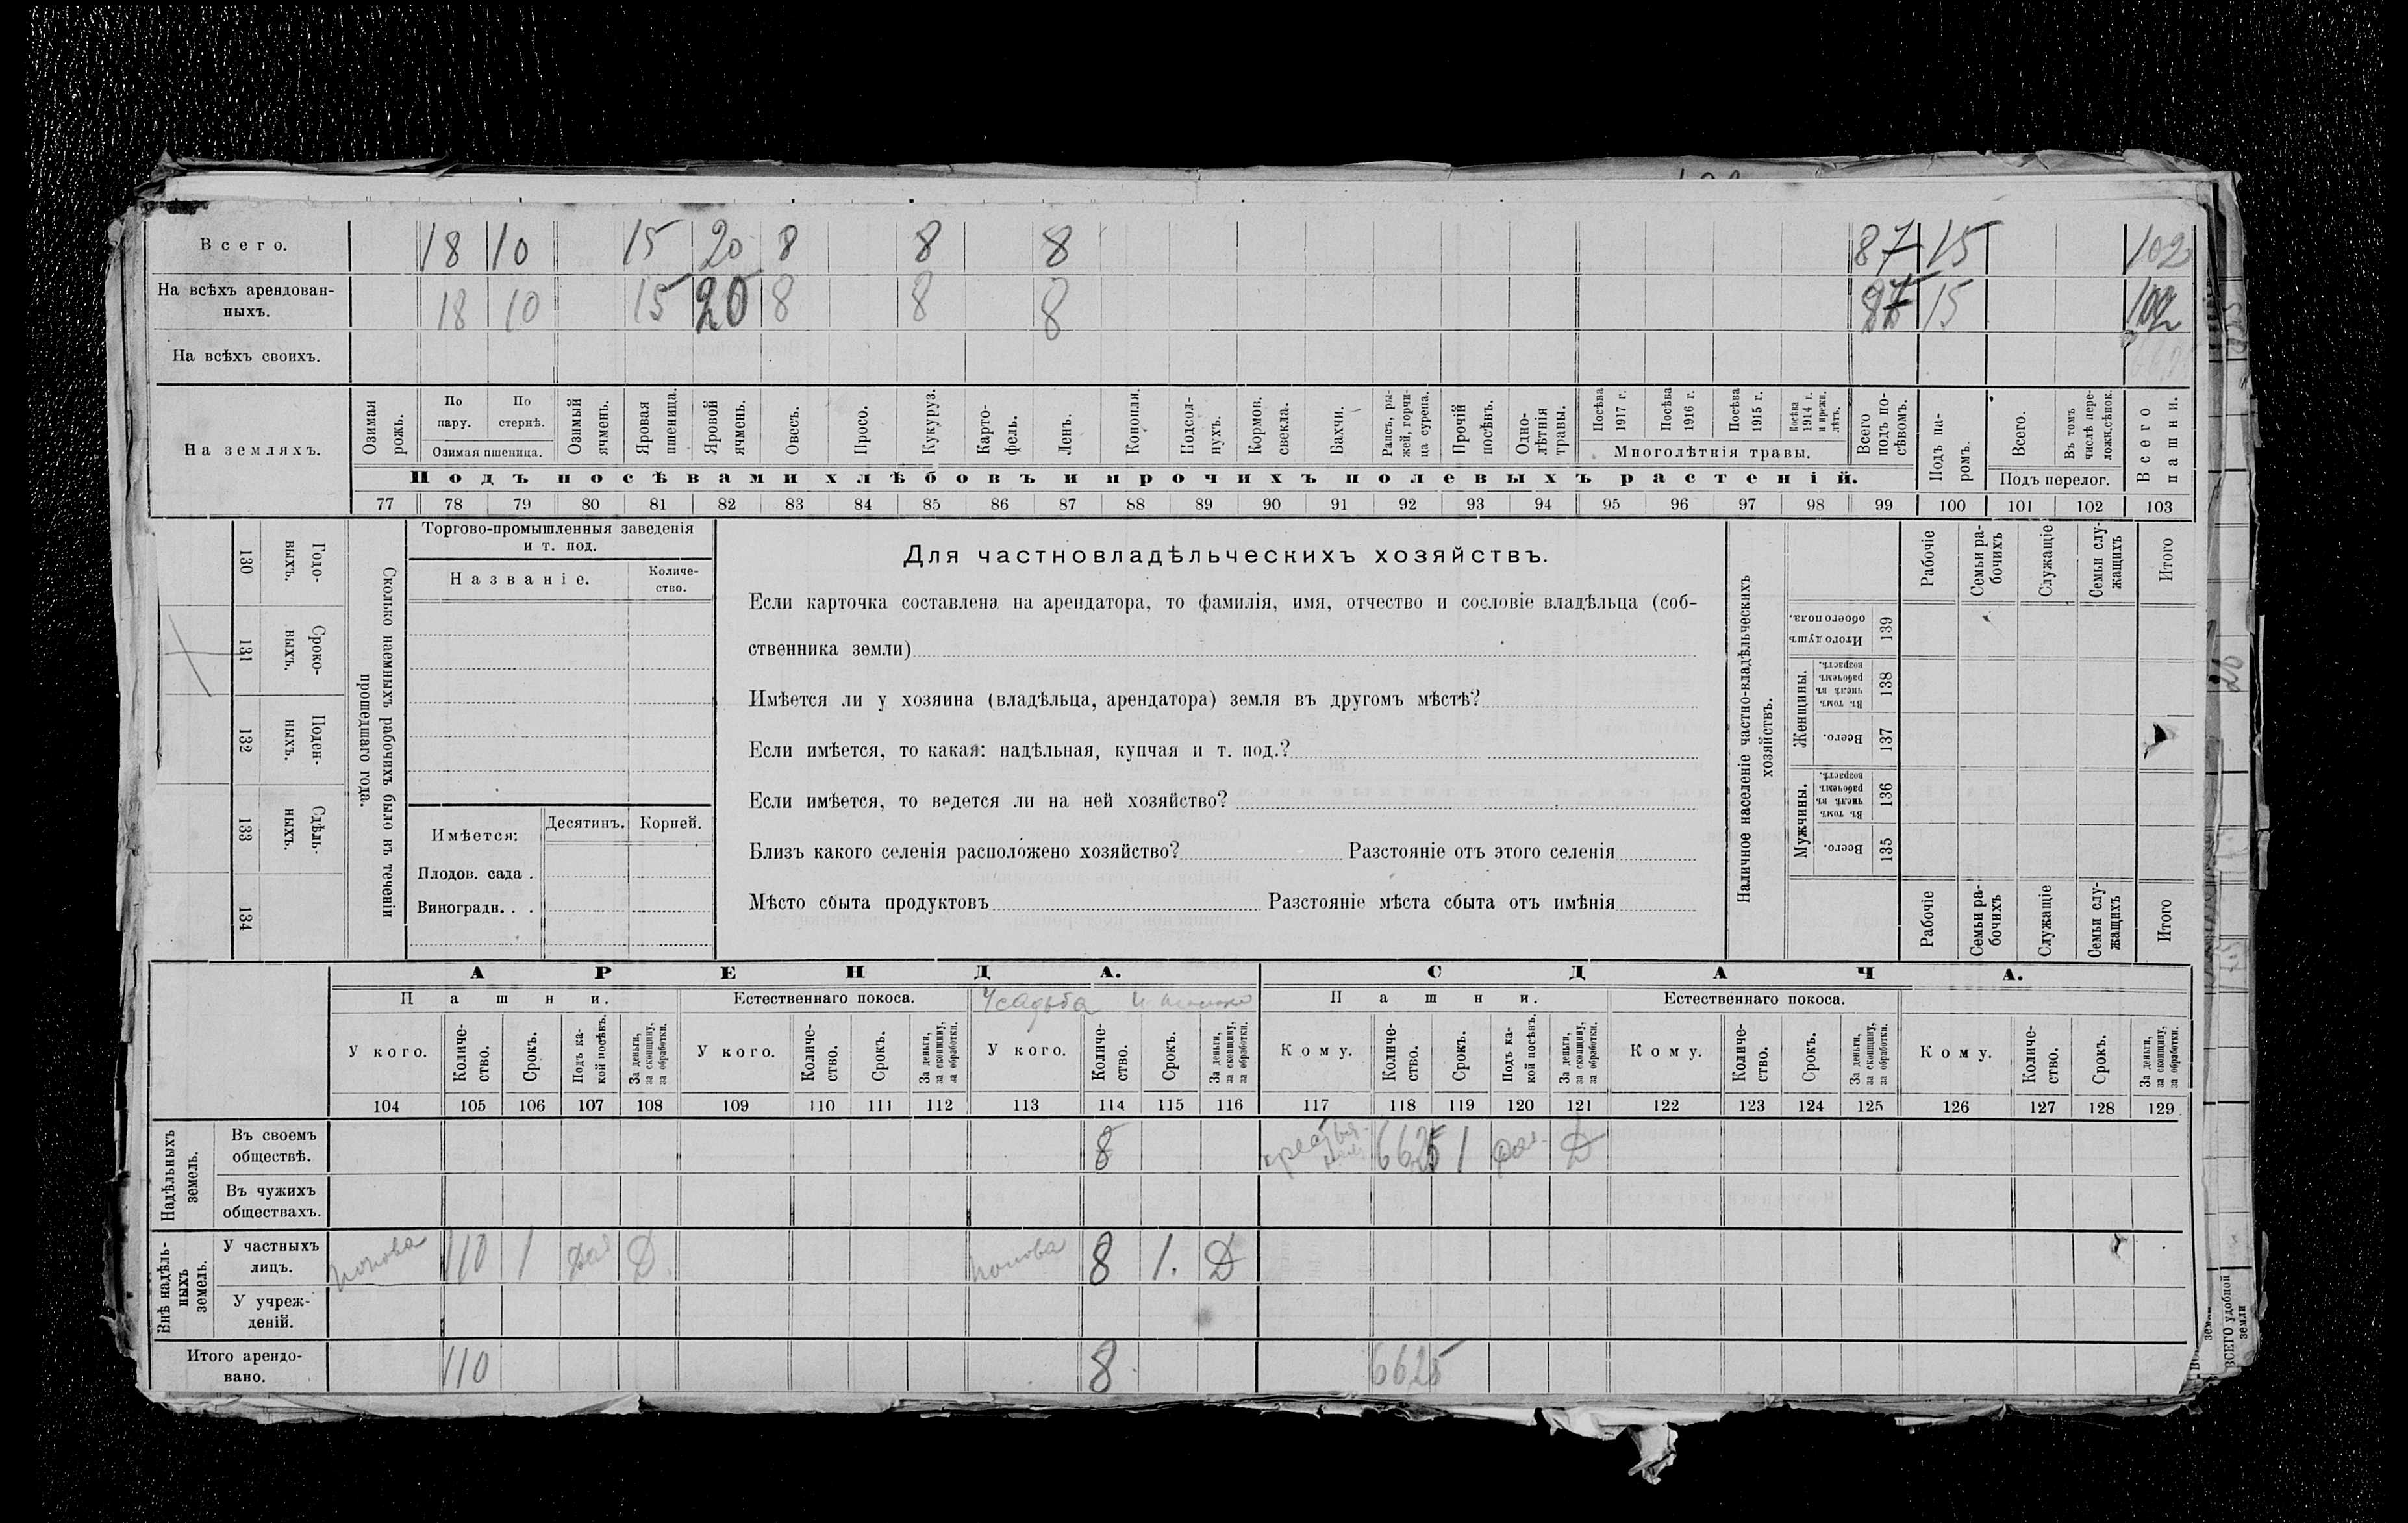 Всего. 18 10 15 20 8 8 8 87 15 102
На всѣхъ арендован-
ныхъ. 18 10 15 20 8 8 8 87 15 102
На всѣхъ своихъ.
На земляхъ.
Озимая рожь.
По пару.
По стернѣ.
Озимая пшеница.
Озимый ячмень.
Яровая пшеница.
Яровой ячмень.
Овесъ.
Просо.
Кукуруз.
Карто-
фель.
Ленъ.
Конопля.
Подсол-
нухъ.
Кормов. свекла.
Бахчи.
Рапсъ, ры-
жей, горчи-
ца сурепа.
Прочій посѣвъ.
Одно-
лѣтнія травы.
Посѣва 1917 г.
Посѣва 1916 г.
Посѣва 1915 г.
Посѣва 1914 г. и прежн. лѣтъ.
Многолѣтнія травы.
Всего подъ по-
сѣвомъ.
Подъ па-
ромъ.
Всего.
Въ томъ числѣ пере-
ложн. сѣнок.
Подъ перелог.
Всего пашни.
Подъ посѣвами хлѣбовъ и прочихъ полевыхъ растеній.
77 78 79 80 81 82 83 84 85 86 87 88 89 90 91 92 93 94 95 96 97 98 99 100 101 102 103
130 Годо-
выхъ.
131 Сроко-
выхъ.
132 Поден-
ныхъ.
133 Сдѣль-
ныхъ.
134
Сколько наемныхъ рабочихъ было въ теченіи
прошедшаго года.
Торгово-промышленныя заведенія
и т. под.
Названіе.
Количе-
ство.
Имѣется:
Десятинъ.
Корней.
Плодов. сада .
Виноградн. . .
Для частновладѣльческихъ хозяйствъ.
Если карточка составлена на арендатора, то фамилія, имя, отчество и сословіе владѣльца (соб-
ственника земли)
Имѣется ли у хозяина (владѣльца, арендатора) земля въ другомъ мѣстѣ?
Если имѣется, то какая: надѣльная, купчая и т. под.?
Если имѣется, то ведется ли на ней хозяйство?
Близъ какого селенія расположено хозяйство? Разстояніе отъ этого селенія
Мѣсто сбыта продуктовъ Разстояніе мѣста сбыта отъ имѣнія
Наличное населеніе частно-владѣльческихъ
хозяйствъ.
Рабочіе
Семьи ра-
бочихъ
Служащіе
Семьи слу-
жащихъ
Итого
Итого душъ обоего пола. 139
Женщины.
Въ томъ числѣ въ рабочемъ возрастѣ. 138
Всего. 137
Мужчины.
Въ томъ числѣ въ рабочемъ возрастѣ. 136
Всего. 135
Рабочіе
Семьи ра-
бочихъ
Служащіе
Семьи слу-
жащихъ
Итого
АРЕНДА. СДАЧА.
Пашни. Естественнаго покоса. Усадьба и Пашни. Естественнаго покоса.
У кого.
Количе-
ство.
Срокъ.
Подъ ка-
кой посѣвъ.
За деньги, за скопщину, за обработки.
У кого.
Количе-
ство.
Срокъ.
За деньги, за скопщину, за обработки.
У кого.
Количе-
ство.
Срокъ.
За деньги, за скопщину, за обработки.
Кому.
Количе-
ство.
Срокъ.
Подъ ка-
кой посѣвъ.
За деньги, за скопщину, за обработки.
Кому.
Количе-
ство.
Срокъ.
За деньги, за скопщину, за обработки.
Кому.
Количе-
ство.
Срокъ.
За деньги, за скопщину, за обработки.
104 105 106 107 108 109 110 111 112 113 114 115 116 117 118 119 120 121 122 123 124 125 126 127 128 129
Надѣльныхъ
земель.
Въ своемъ
обществѣ. 8 6625 1 Д
Въ чужихъ
обществахъ.
Внѣ надѣль-
ныхъ
земель.
У частныхъ
лицъ. Попова 110 1 Д. Попова 8 1. Д
У учреж-
деній.
Итого арендо-
вано. 110 8 6625
ВСЕГО удобной
земли